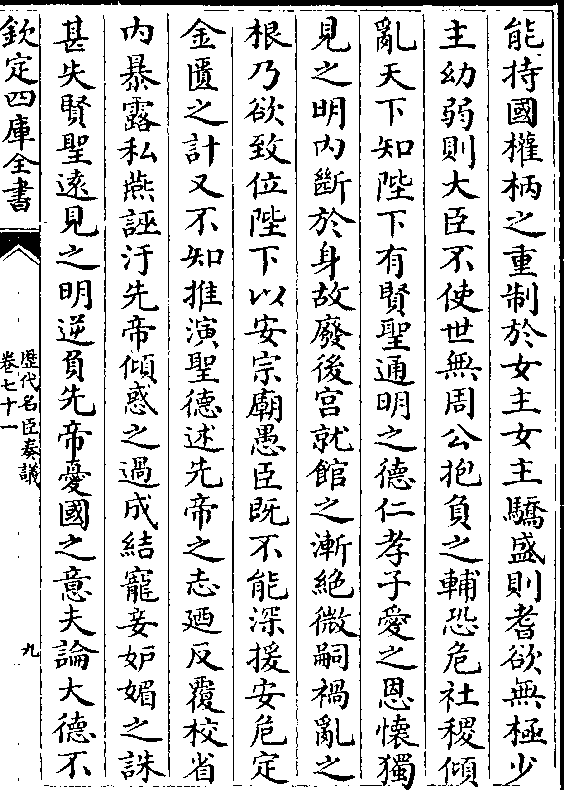 能持國權柄之重制於女主女主驕盛則耆欲無極少
主幼弱則大臣不使世無周公抱負之輔恐危社稷傾
亂天下知陛下有賢聖通明之德仁孝子愛之恩懷獨
見之明内斷於身故廢後宮就館之漸絶微嗣禍亂之
根乃欲致位陛下以安宗廟愚臣既不能深援安危定
金匱之計又不知推演聖德述先帝之志廼反覆校省
内暴露私燕誣汙先帝傾惑之過成結寵妾妒媚之誅
甚失賢聖遠見之明逆負先帝憂國之意夫論大德不
欽定四庫全書
歷代名臣奏議
卷七十一
九